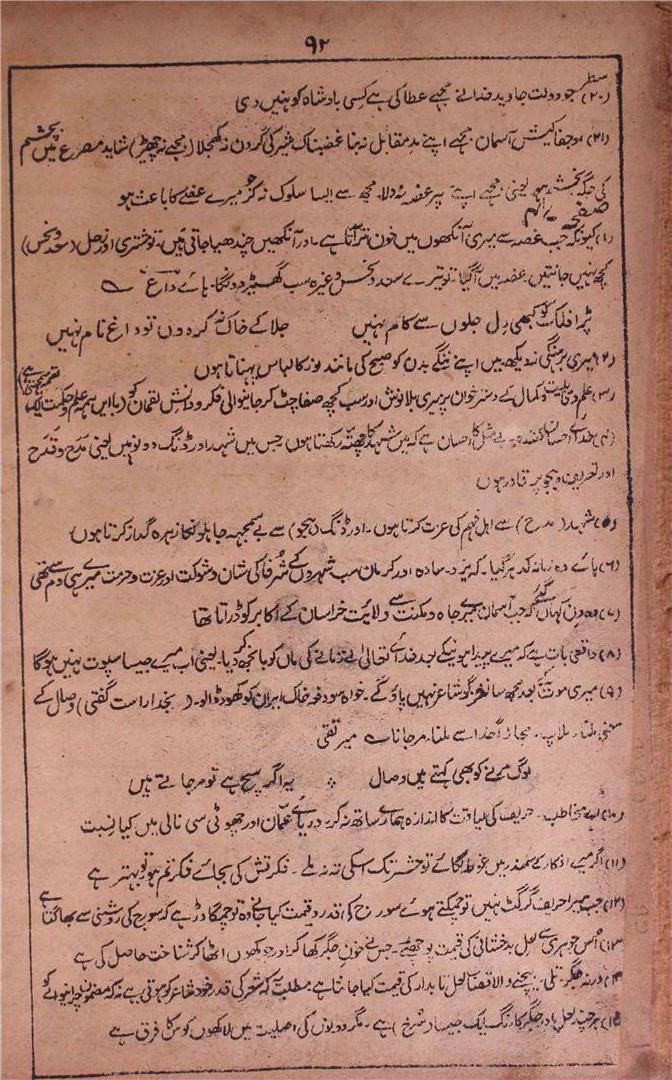 ۹۲
سطر
(۲۰) جو دولت جاوید خدا نے مجھے عطا کی ہے کسی بادشاہ کو نہیں دی
(۲۱) او جفا کیش آسمان مجھے اپنے مدمقابل نہ بنا غضبناک شیر کی گردن نہ کھجلا (مجھے نہ چھیڑ) شاید مصرع میں پچشم
کی جگہ بخشد ہو یعنی مجھے اپنے پر غصہ نہ دلا مجھ سے ایسا سلوک نہ کر جو میرے غصے کا باعث ہو
صفحہ
(۱) کیونکہ جب غصہ سے میری آنکھوں میں خون تر آتا ہے۔ اور آنکھیں چندھیا جاتی ہیں۔ تو مشتری اور زحل (سعد و نحس)
کچھ نہیں جانتیں۔ غصہ میں آگیا۔ تو تیرے سعد و نحس وغیرہ سب گھسیڑ دونگا۔ ہائے داغ ؎
پڑا فلک کو کبھی دل جلوں سے کام نہیں جلا کے خاک نہ کر دوں تو داغ نام نہیں
(۲) میری برہنگی نہ دیکھ میں اپنے ننگے بدن کو صبح کی مانند نور کا لباس پہناتا ہوں
(۳) علم و قابلیت و کمال کے دسترخوان پر میری بلانوش اور سب کچھ صفا چٹ کر جانیوالی فکر و دانش لقمان کو (با ایں ہمہ علم و حکمت ایک
لقمہ سمجھتی ہے)
(۴) خدائے احسان کنندہ بے مثل کا احسان ہے کہ میں شہد کا چھتہ رکھتا ہوں جس میں شہد اور ڈنگ دونو ہیں یعنی مدح و قدح
اور تعریف و ہجو پر قادر ہوں
(۵) شہد (مدح) سے اہل فہم کی عزت کرتا ہوں۔ اور ڈنگ (ہجو) سے بے سمجھ جاہلونکا زہرہ گداز کرتا ہوں
(۶) ہائے وہ زمانہ کدھر گیا۔ کہ یزد۔ سادہ اور کرمان سب شہروں کے شرفا کی شان و شوکت اور عزت و حرمت میرے ہی دم سے تھی
(۷) وہ دن کہاں گئے کہ جب آسمان میرے جاہ و مکنت سے ولایت خراسان کے اکابر کو ڈراتا تھا
(۸) واقعی بات ہے کہ میرے پیدا ہونیکے بعد خدائے تعالی نے زمانے کی ماں کو بانجھ کر دیا۔ یعنی اب میرے جیسا سپوت نہیں ہوگا
(۹) میری موت کے بعد مجھ سا نغز گو شاعر نہیں پاؤ گے۔ خواہ سو دفعہ خاک ایران کو کھود ڈالو۔ (بخدا راست گفتی) وصال کے
معنی ملنا۔ ملاپ۔ مجازاً خدا سے ملنا۔ مر جانا ؎ میر تقی
لوگ مرنے کو بھی کہتے ہیں وصال یہ اگر سچ ہے تو مر جاتے ہیں
(۱۰) اے مخاطب۔ حریف کی لیاقت کا اندازہ ہمارے ساتھ نہ کر۔ دریائے عمان اور چھوٹی سی نالی میں کیا نسبت
(۱۱) اگر میرے افکار کے سمندر میں غوطہ لگائے تو حشر تک اسکی تہ نہ ملے۔ فکرتش کی بجائے فکرتم ہو تو بہتر ہے
(۱۲) جب میرا حریف گرگٹ نہیں تو چمکتے ہوئے سورج کی قدر و قیمت کیا جانے وہ تو چمگادڑ ہے کہ سورج کی روشنی سے بھاگتا ہے
(۱۳) اس جوہری سے لعل بدخشانی کی قیمت پوچھئے۔ جس نے خون جگر کھا کر اور دکھوں اٹھا کر شناخت حاصل کی ہے
(۱۴) ورنہ جگر تلی بیچنے والا قصائی لعل تابدار کی قیمت کیا جانتا ہے مطلب یہ کہ شعر کی قدر خود شاعر کو ہوتی ہے نہ کہ مضمون چرانیوالے کو
(۱۵) ہر چند لعل اور جگر کا رنگ ایک جیسا (سرخ) ہے۔ مگر دونوں کی اصلیت میں لاکھوں کوس کا فرق ہے